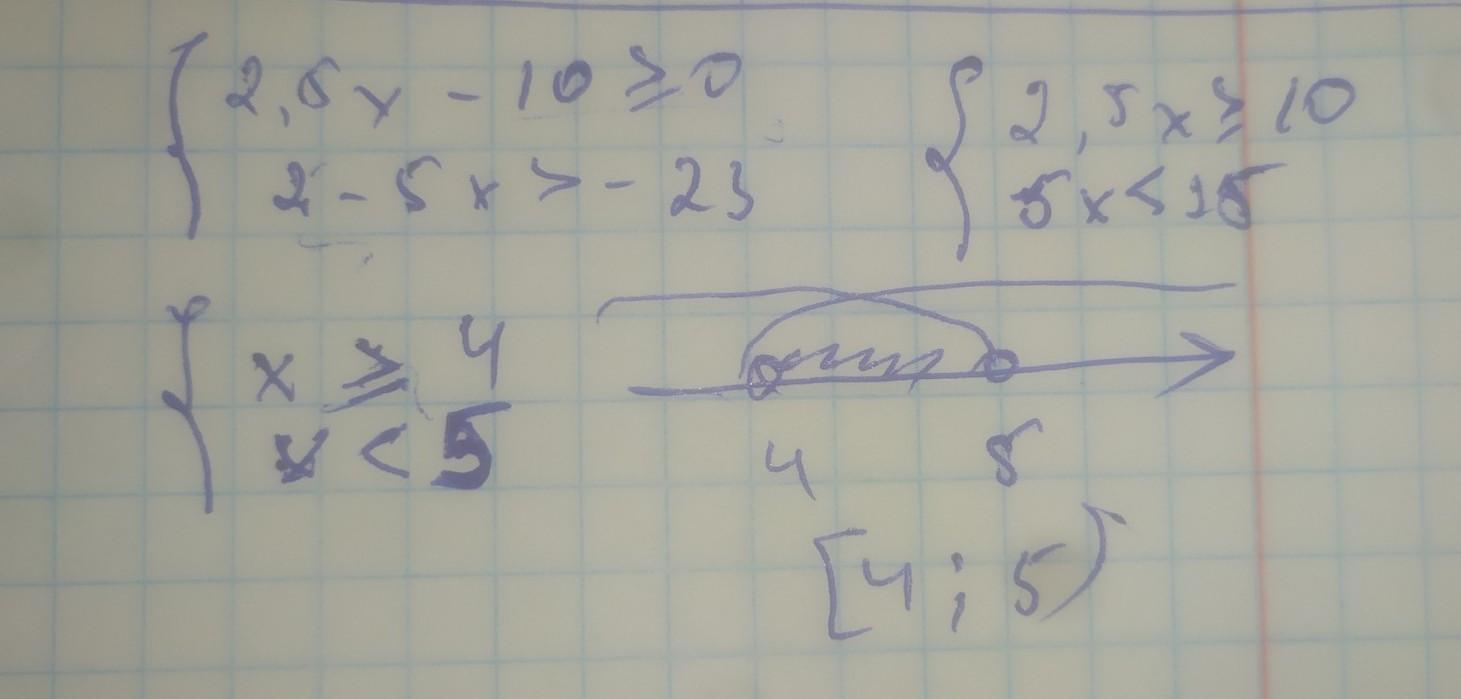 2,5x - 10 ≥ 0
2 - 5x > - 23
2,5x ≥ 10
5x < 25
x ≥ 4
x < 5
4 5
[4 ; 5)